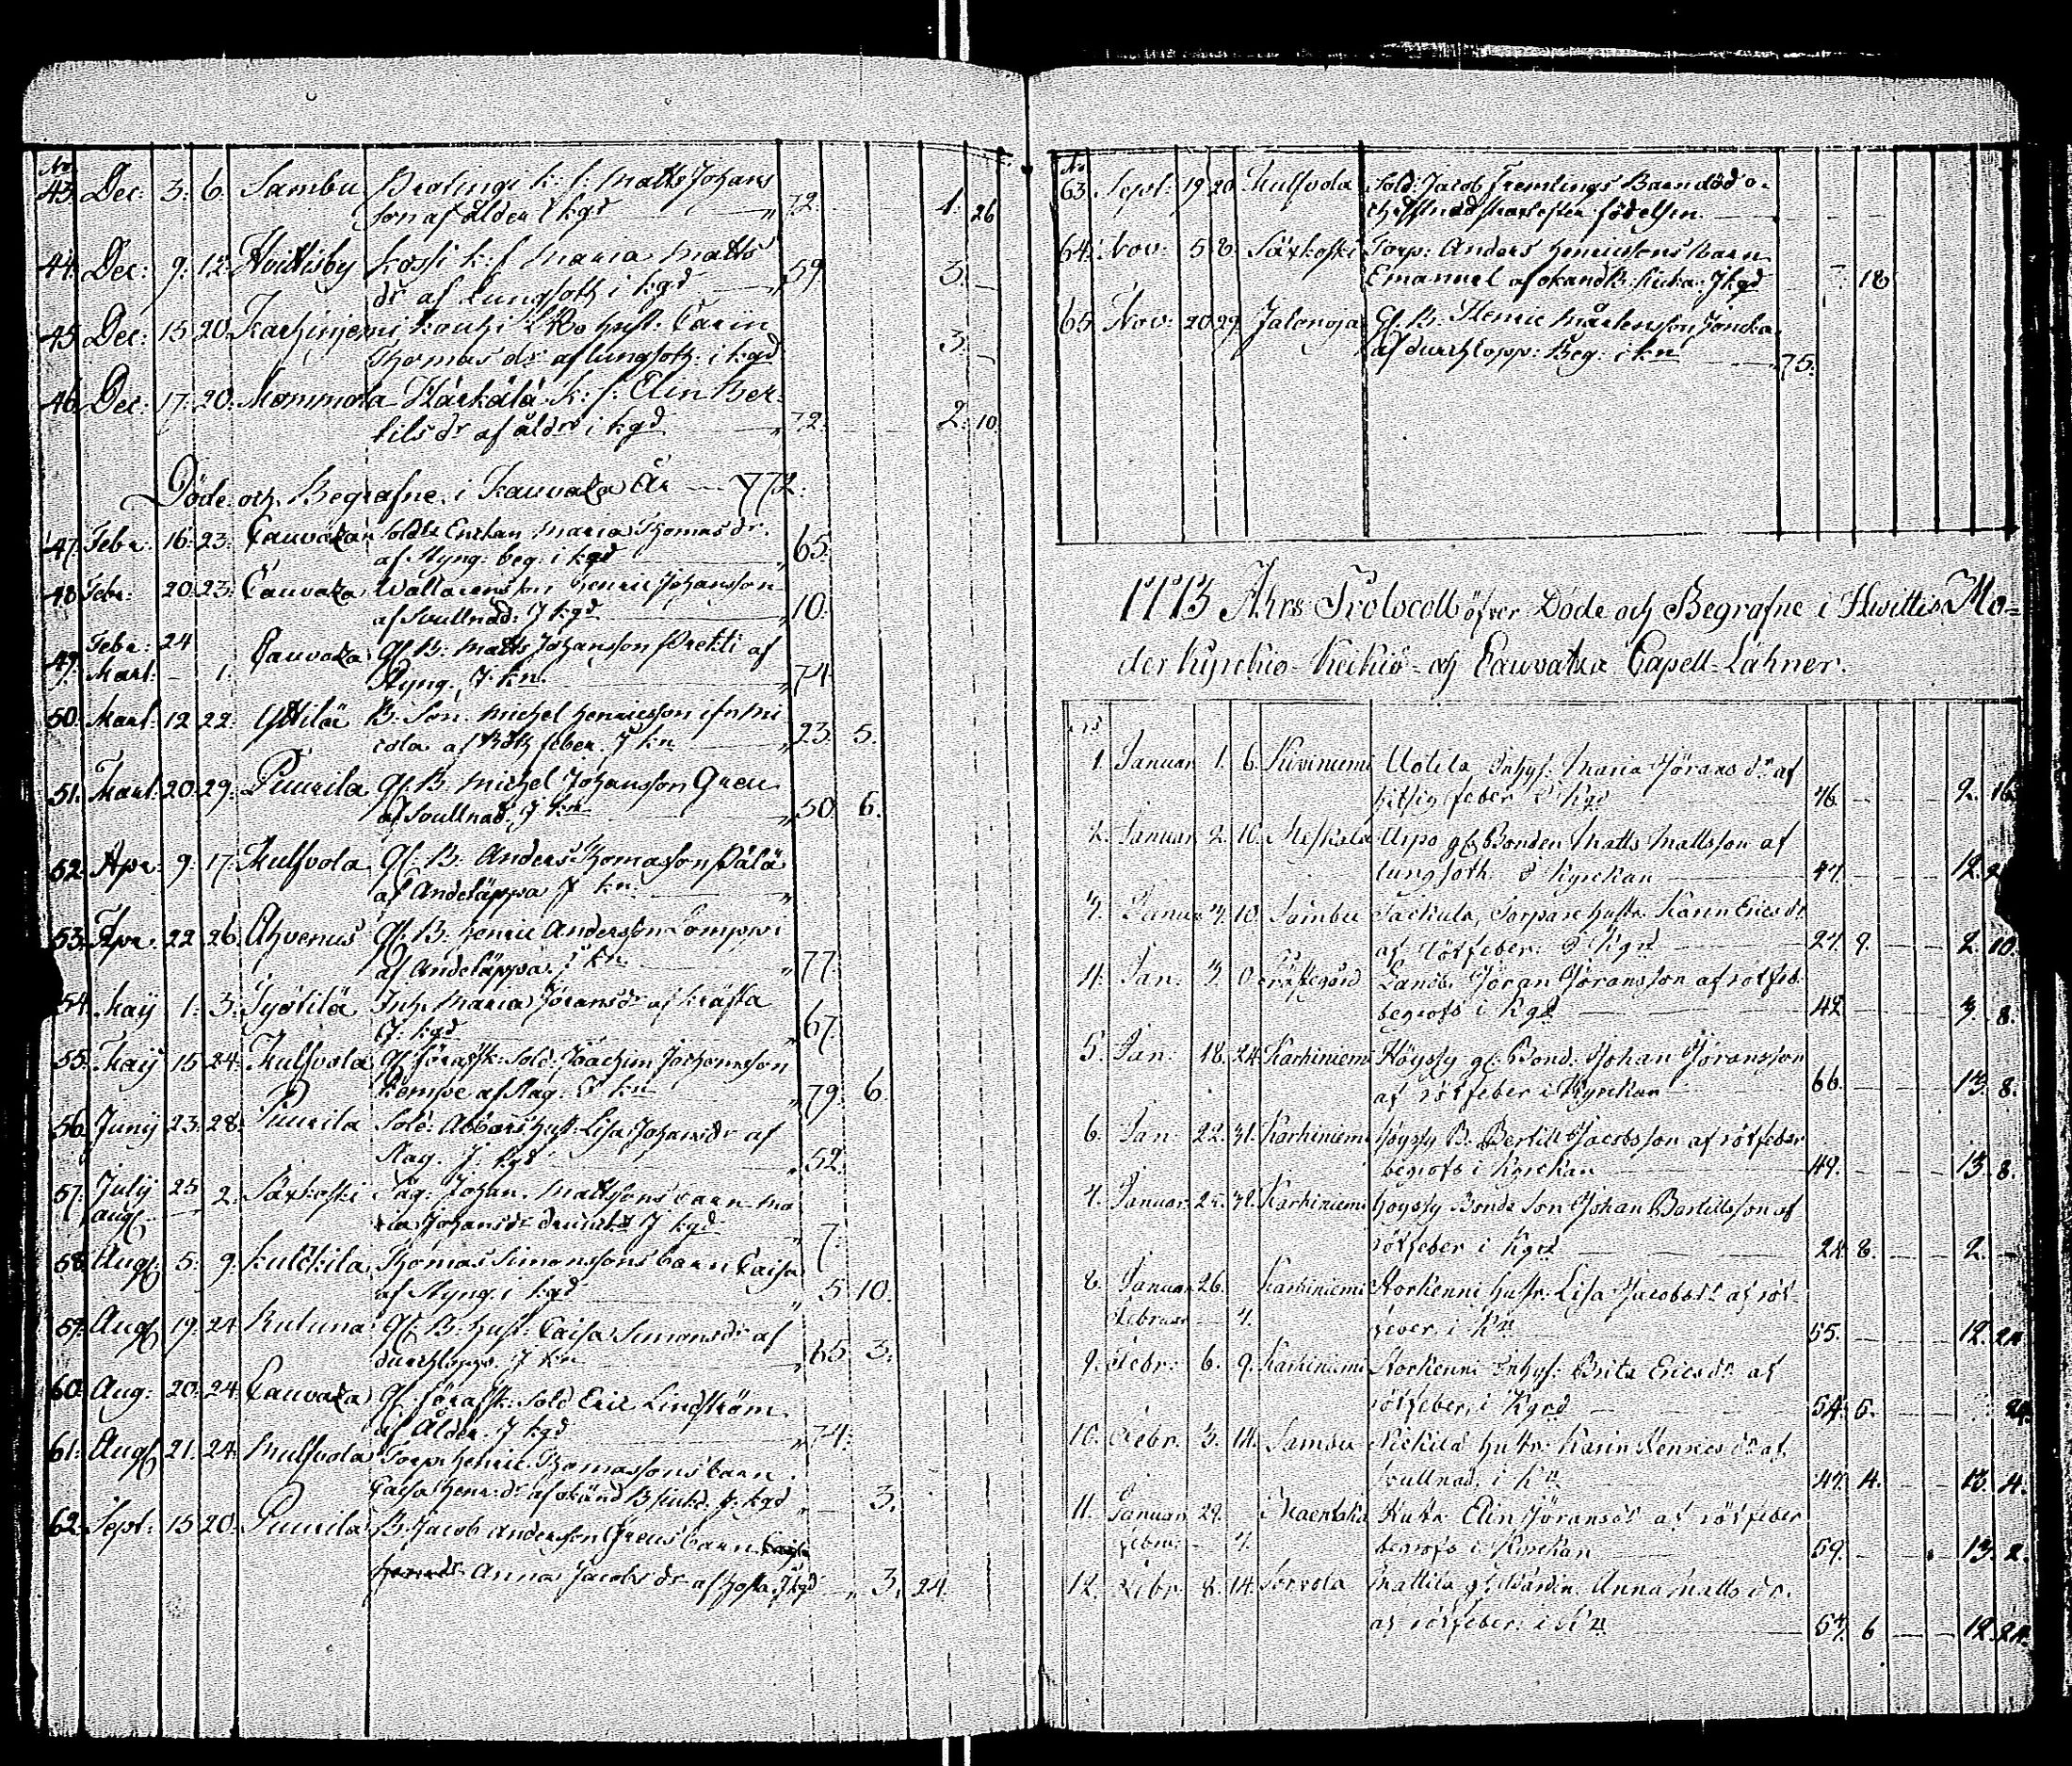 No
43. Dec: 3. 6. Sambu k: f: Matts Johans
son af ålder i kgd 72. 1. 26
44. Dec: 9. 12. Hvittisby Kossi k: f Maria Matts
dr af Lungsoth i kgd 59 3. –
45. Dec: 15 20. Karhinjemi Kouhi Hust. Carin
Thomas dr af lungsoth i kgd 3. –
46. Dec: 17. 20. Mommola Härkälä k: f: Elin Ber-
tils dr af åldr i kgd 72. 2. 10.
Döde och Begrafne i Kauvatza År 772.
47. Febr. 16. 23. Cauvatza Soldts Enkan Maria Thomas dr.
af Styng: beg: i kgd 65.
48. Febr: 20. 23. Cauvatza Henric Johansson
af Svullnad: J kgd 10.
49. Febr: 24 Cauvatza Gl B: Matts Johansson Prekti af
Mart: – 1. Styng. J kn. 74
50. Mart: 12 22. Yttilä B. Son. Michel Henricsson ifr. Mi
cola af Röth feber. J kn 23. 5.
51. Mart: 20. 29. Puurila Gl. B. Michel Johansson Greu
af Svullnad. J kn 50. 6.
52. Apr. 9. 17. Kulsvola Gl: B: Anders Thomasson Pälä
af Andeläppa J kn.
53. Apr. 22. 26. Ahvenus Gl. B: Henric Andersson Lomppi
af Andeläppa. J kn 77
54. Maij 1. 3. Työtilä Inh. Maria Jöransdr af kräfta
J. kgd 67.
55. Maij 15 24. Kulsvola Gl. förafsk: Sold: Joachim Johansson
Kempe af Slag. J kn 79. 6.
56. Junij 23. 28. Puurila Sold: Abbors Hust. Lisa Johansdr af
Slag. J. kgd 52.
57. Julij 25 Säxkoski Tag: Johan Mattsons barn Ma
Aug. – 2. ria Johansdr J kgd 7.
58. Aug. 5. 9. Kulckila Thomas Simonssons barn Caisa
af Styng. i kgd 5 10.
59. Aug. 19. 24 Rutuna Gl. B: Hust: Caisa Simonsdr af
durchlopp. J kn 65 3.
60. Aug. 20. 24. Cauvatza Gl. förafsk: Sold Eric Lindström
af Ålder. J kgd 74.
61. Aug. 21. 24. Kulsvola Torp: Henric Thomassons barn.
Caisa Henr: dr af okänd B: siukd. J. kgd 3.
62. Sept: 15 20. Puurila B: Jacob Andersson Greus barn
Anna Jacobs dr af hosta. J kgd 3. 24.
No
63. Sept. 19 20 Kulsvola Sold: Jacob Fremlings Barn död o-
christnad strax efter födelsen.
64. Nov: 5. 8. Säxkoski Torp: Anders Henricssons barn
Emanuel af okänd B: siuka: J kgd 18
65. Nov: 20 29. Jalonoja Gl. B: Henric Mårtensson Joncka
af durchlopp: Beg: i kn 75.
1773 Åhrs Protocoll öfver Döde och Begrafne i Hvittis Mo-
der kyrckio- Keikiö- och Cauvatza Capell-Lähner.
No
1. Januari 1. 6. Kiviniemi Uotila Inhys: Maria Jörans dr af
hitsig feber i Kgd 76. 2. 16
2. Januari 2. 10. Meskala Uspo gl. Bonden Matts Mattsson af
lungsoth i Kyrckan 47. 12. 2
3. Januar 3. 10. Sambu Torpare hustr. Karin Erics dr
af rötfeber: i Kgrd 27. 9. 2. 10.
4. Jan: 3. 0 Prästegård Landb. Jöran Jöransson af rötfeb.
begrofs i Kgd 42 3. 8.
5. Jan: 18. 24 Karhiniemi Höyssy gl. Bond: Johan Jöransson
af rötfeber i Kyrckan 66. 13. 8.
6. Jan: 22. 31. Karhiniemi Höyssy B: Bertill Jacobsson af rötfeber
begrofs i Kyrckan 49. 13. 8.
7. Januari 25. 31. Karhiniemi Höyssy Bonde Son Johan Bertillsson af
rötfeber i Kgrd 24. 8. 2. –
8. Januari 26. Karhiniemi Storkenni hustr: Lisa Jacobs dr af röt-
Februar 7. feber i Kn. 55. 12. 24
9. Febr: 6. 9. Karhiniemi Storkenni Inhys: Brita Erics dr af
rötfeber, i Kgrd 54. 5. 24.
10. Febr. 3. 14. Sambu Nickilä hustr: Karin Henrics dr af
svullnad. i Kn 47. 4. 13. 4.
11. Januari 29. Hustr. Elin Jöransdr af rötfeber
Febru: 7. begrofs i Kyrckan 59. 13. 2.
12. Febr. 8. 14. Sorvola Mattila gl. Värdin. Anna Matts dr.
af rötfeber. i Kn 57. 6 12. 24.